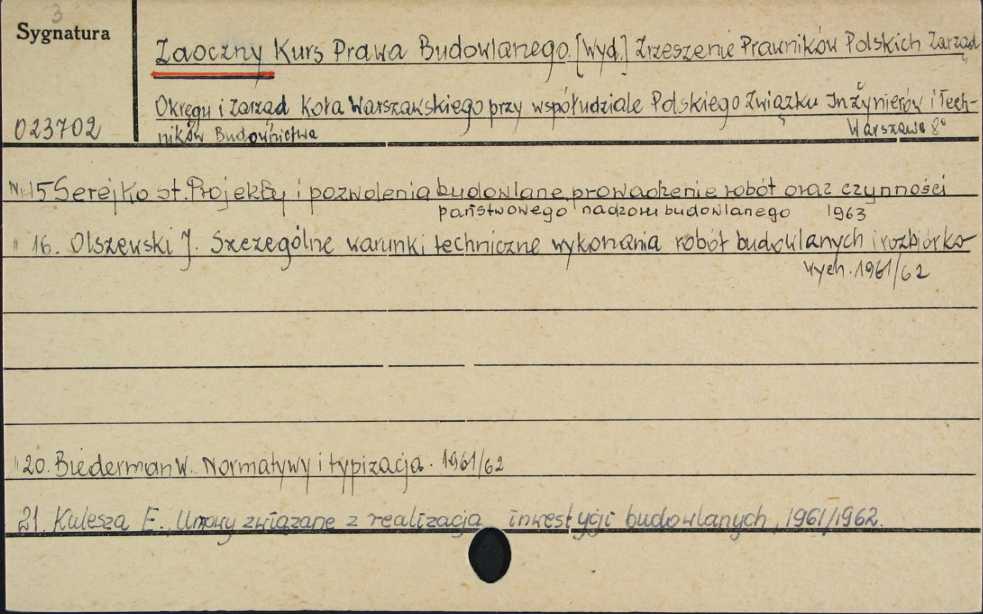 3
Sygnatura
Zaoczny Kurs Prawa Budowlanego. [Wyd.] Zrzeszenie Prawników Polskich Zarząd
Okręgu i Zarząd Koła Warszawskiego przy współudziale Polskiego Związku Inżynierów i Tech-
ników Budownictwa Warszawa 8°
023702
Nr 15 Serejko St. Projekty i pozwolenia budowlane, prowadzenie robót oraz czynności
państwowego nadzoru budowlanego 1963
" 16. Olszewski J. Szczególne warunki techniczne wykonania robót budowlanych i rozbiórko-
wych. 1961/62
" 20. Biederman W. Normatywy i typizacja. 1961/62
21. Kulesza E., Umowy związane z realizacją inwestycji budowlanych, 1961/1962.